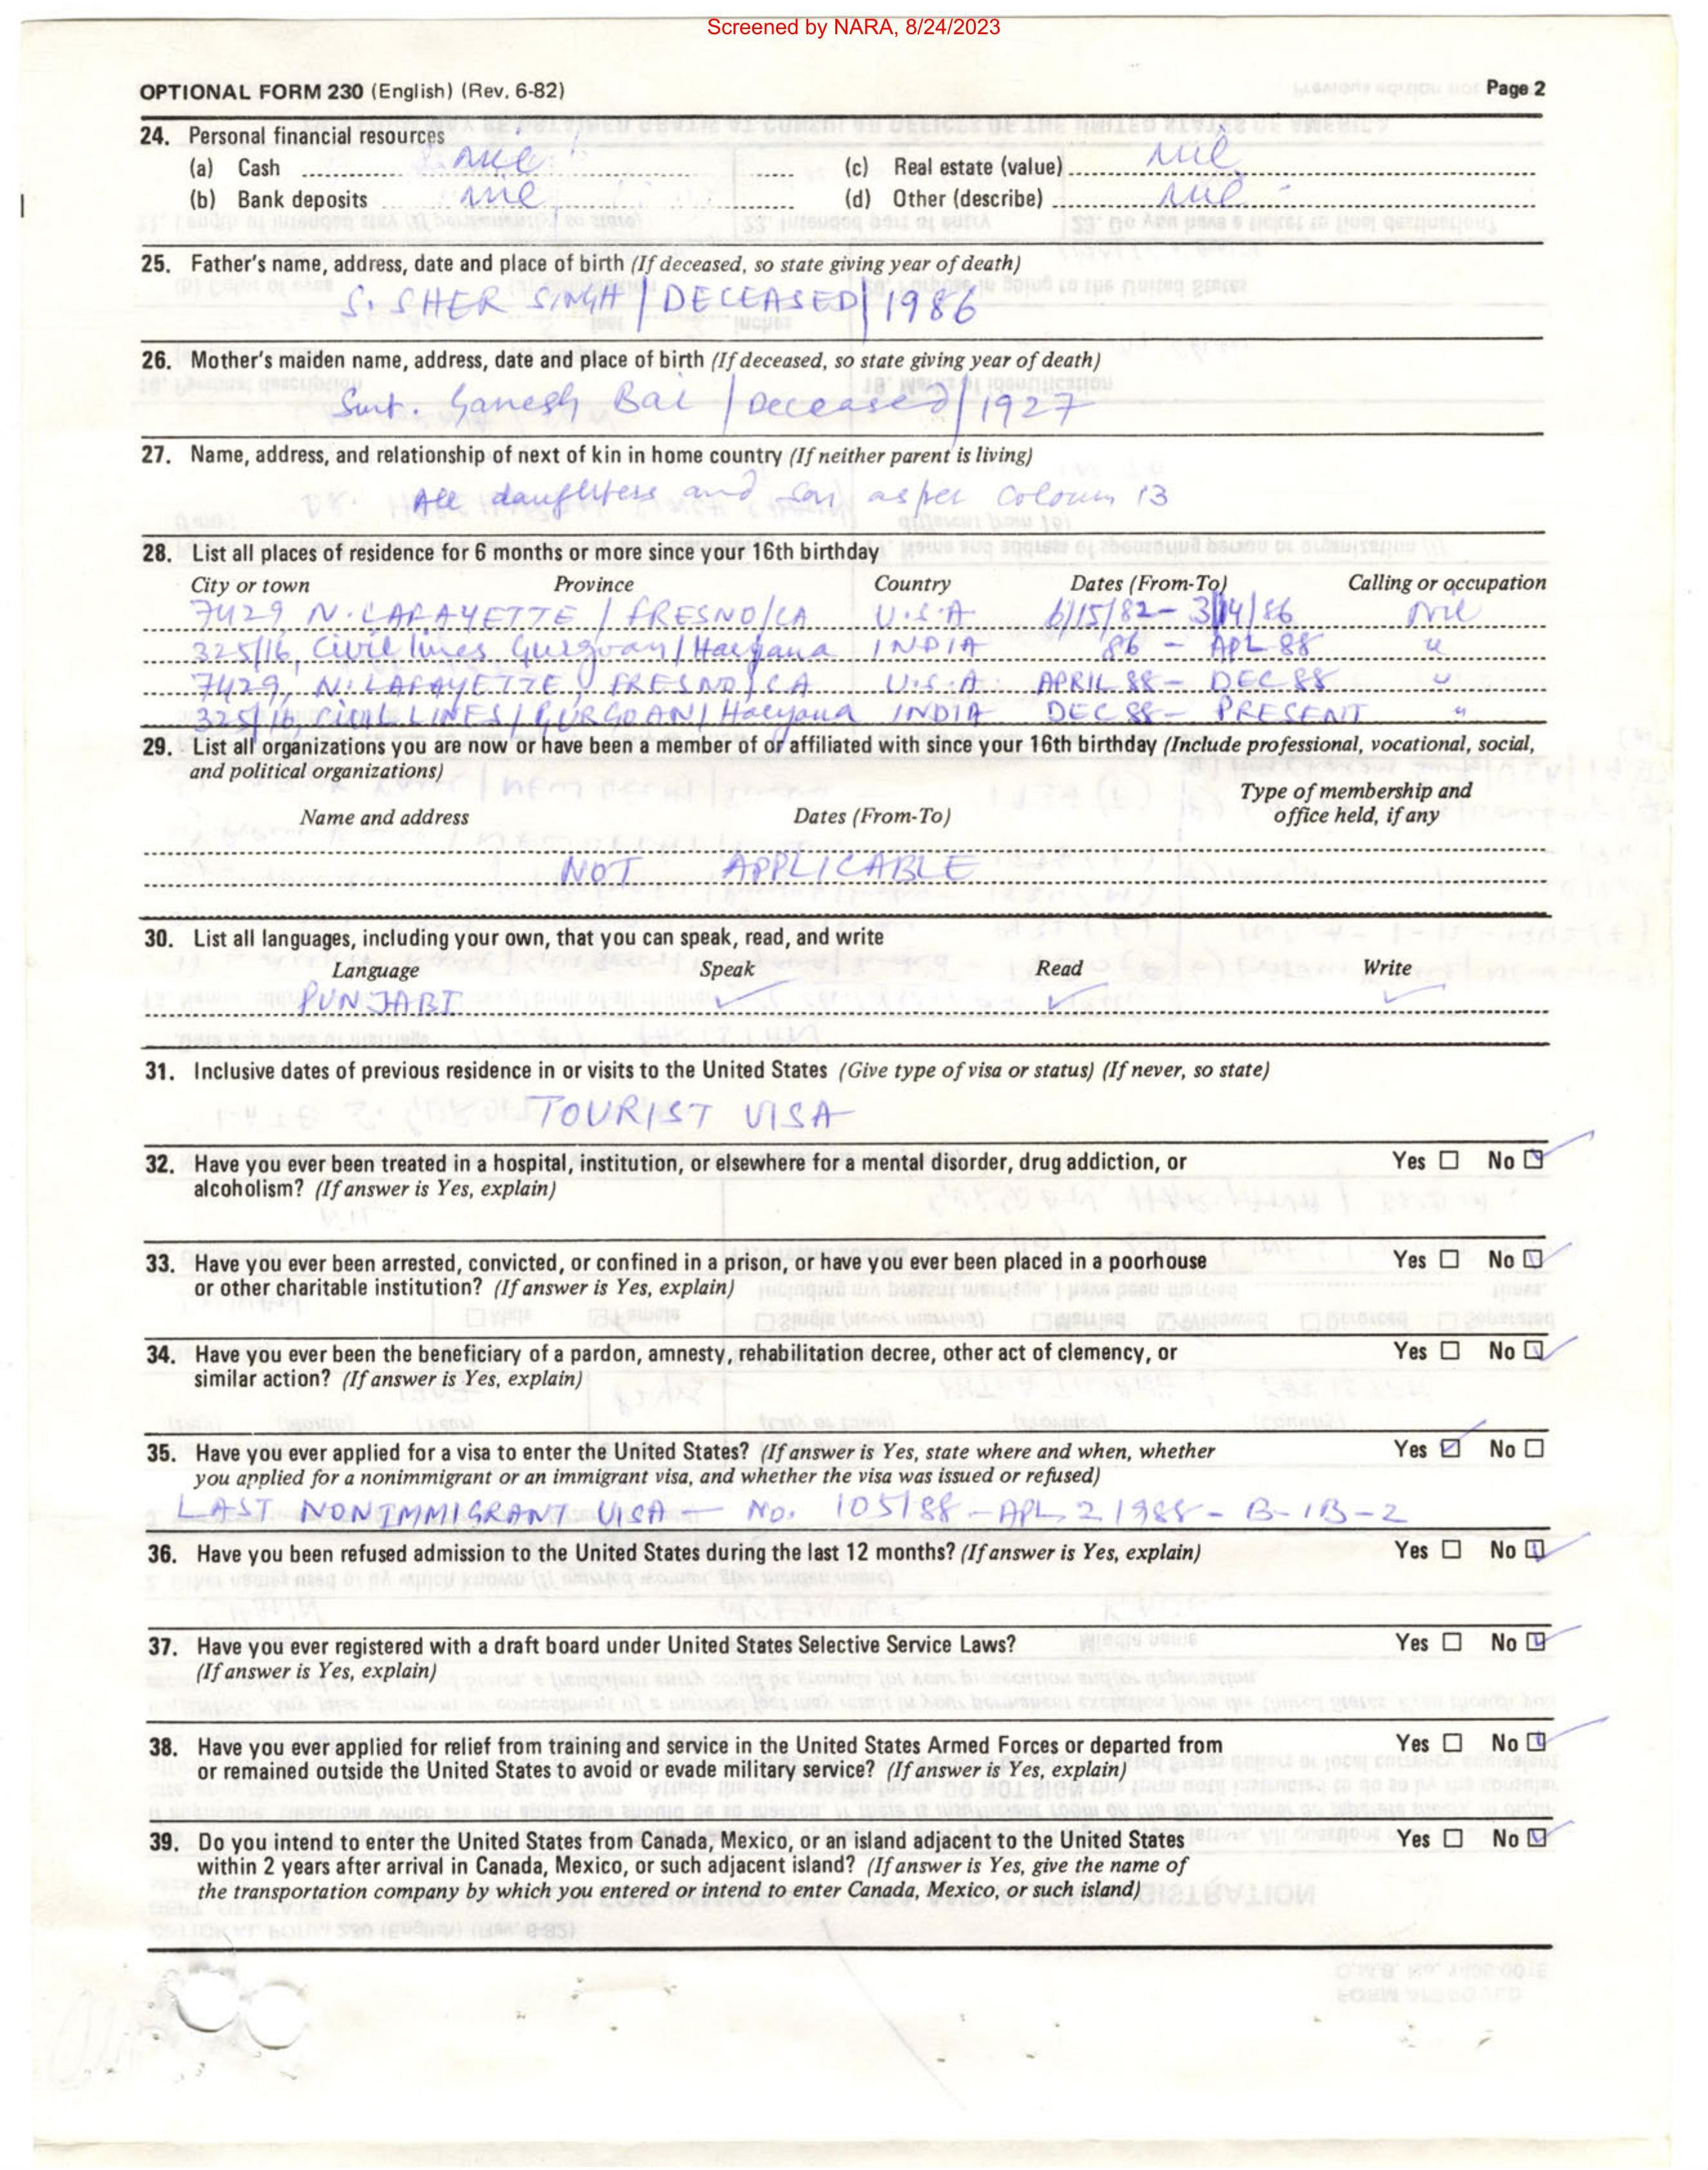 Screened by NARA, 8/24/2023
OPTIONAL FORM 230 (English) (Rev. 6-82) Page 2
24. Personal financial resources
(a) Cash nil (c) Real estate (value) nil
(b) Bank deposits nil (d) Other (describe) nil
25. Father's name, address, date and place of birth (If deceased, so state giving year of death)
S. SHER SINGH / DECEASED / 1986
26. Mother's maiden name, address, date and place of birth (If deceased, so state giving year of death)
Smt. Ganesh Bai / Deceased / 1927
27. Name, address, and relationship of next of kin in home country (If neither parent is living)
All daughters and son as per Coloum 13
28. List all places of residence for 6 months or more since your 16th birthday
City or town Province Country Dates (From-To) Calling or occupation
7429 N. LAFAYETTE / FRESNO/CA U.S.A 6/15/82 - 3/14/86 Nil
325/16, Civil lines Gurgoan / Haryana INDIA 86 - APL 88 "
7429, N. LAFAYETTE, FRESNO/CA U.S.A. APRIL 88 - DEC 88 "
325/16, CIVIL LINES / GURGOAN / Haryana INDIA DEC 88 - PRESENT "
29. List all organizations you are now or have been a member of or affiliated with since your 16th birthday (Include professional, vocational, social,
and political organizations)
Type of membership and
Name and address Dates (From-To) office held, if any
NOT APPLICABLE
30. List all languages, including your own, that you can speak, read, and write
Language Speak Read Write
PUNJABI ✓ ✓ ✓
31. Inclusive dates of previous residence in or visits to the United States (Give type of visa or status) (If never, so state)
TOURIST VISA
32. Have you ever been treated in a hospital, institution, or elsewhere for a mental disorder, drug addiction, or Yes ☐ No ☑
alcoholism? (If answer is Yes, explain)
33. Have you ever been arrested, convicted, or confined in a prison, or have you ever been placed in a poorhouse Yes ☐ No ☑
or other charitable institution? (If answer is Yes, explain)
34. Have you ever been the beneficiary of a pardon, amnesty, rehabilitation decree, other act of clemency, or Yes ☐ No ☑
similar action? (If answer is Yes, explain)
35. Have you ever applied for a visa to enter the United States? (If answer is Yes, state where and when, whether Yes ☑ No ☐
you applied for a nonimmigrant or an immigrant visa, and whether the visa was issued or refused)
LAST NONIMMIGRANT VISA - No. 105188 - APL 2 1988 - B-1B-2
36. Have you been refused admission to the United States during the last 12 months? (If answer is Yes, explain) Yes ☐ No ☑
37. Have you ever registered with a draft board under United States Selective Service Laws? Yes ☐ No ☑
(If answer is Yes, explain)
38. Have you ever applied for relief from training and service in the United States Armed Forces or departed from Yes ☐ No ☑
or remained outside the United States to avoid or evade military service? (If answer is Yes, explain)
39. Do you intend to enter the United States from Canada, Mexico, or an island adjacent to the United States Yes ☐ No ☑
within 2 years after arrival in Canada, Mexico, or such adjacent island? (If answer is Yes, give the name of
the transportation company by which you entered or intend to enter Canada, Mexico, or such island)